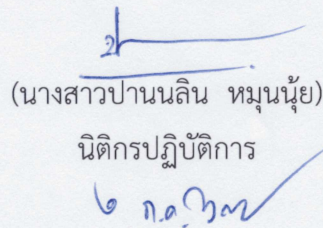 (นางสาวปานนลิน หมุนนุ้ย)
นิติกรปฏิบัติการ
๒ ก.ค.